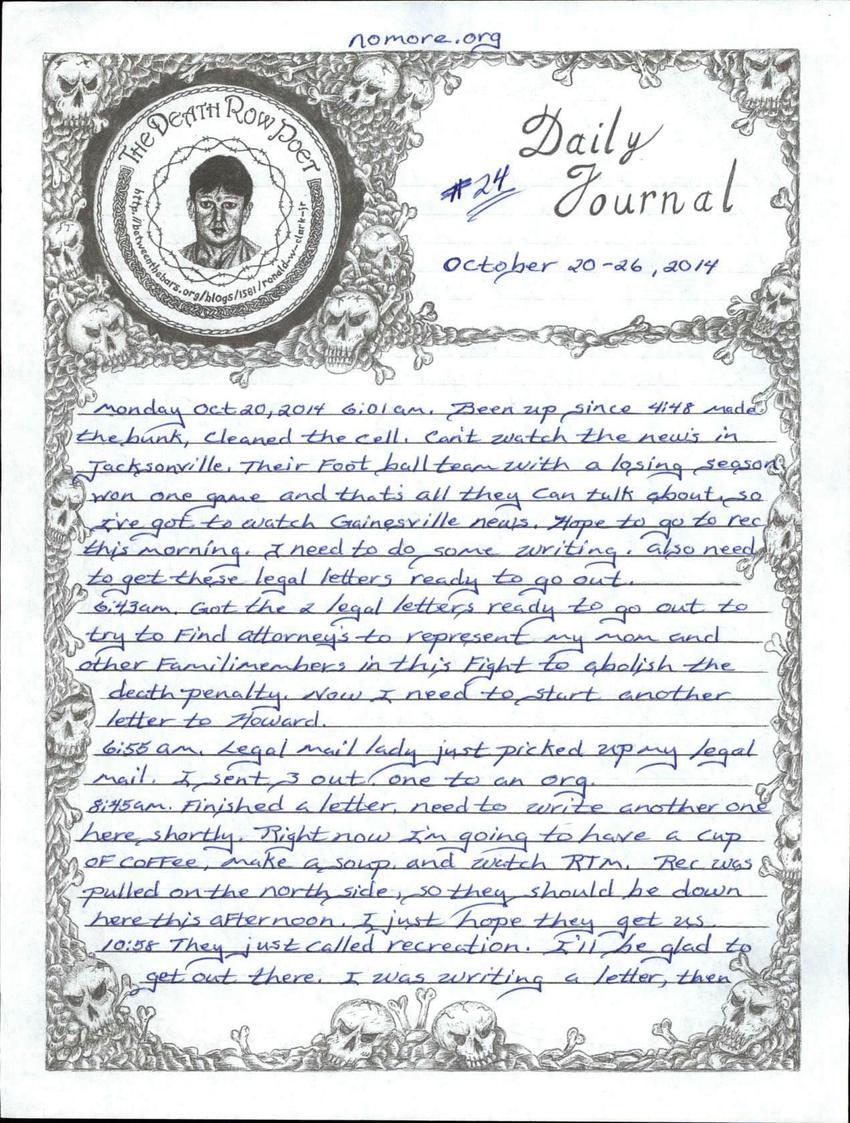 nomore.org
THE DEATH ROW POET
http://betweenthebars.org/blogs/1581/ronald-w-clark-jr
Daily
Journal
#24
October 20-26, 2014
Monday Oct 20, 2014 6:01am. Been up since 4:48 made
the bunk, cleaned the cell. Can't watch the news in
Jacksonville. Their Foot ball team with a losing season
won one game and that's all they can talk about, so
I've got to watch Gainesville news. Hope to go to rec
this morning. I need to do some writing. also need
to get these legal letters ready to go out.
6:43am. Got the 2 legal letters ready to go out to
try to Find attorney's to represent my mom and
other Familimembers in this Fight to abolish the
death penalty. Now I need to start another
letter to Howard.
6:55 am. Legal mail lady just picked up my legal
mail. I sent 3 out, one to an org.
8:45am. Finished a letter, need to write another one
here shortly. Right now I'm going to have a cup
OF COFFee, make a soup, and watch RTM. Rec was
pulled on the north side, so they should be down
here this aFternoon. I just hope they get us.
10:58 They just called recreation. I'll be glad to
get out there. I was writing a letter, then